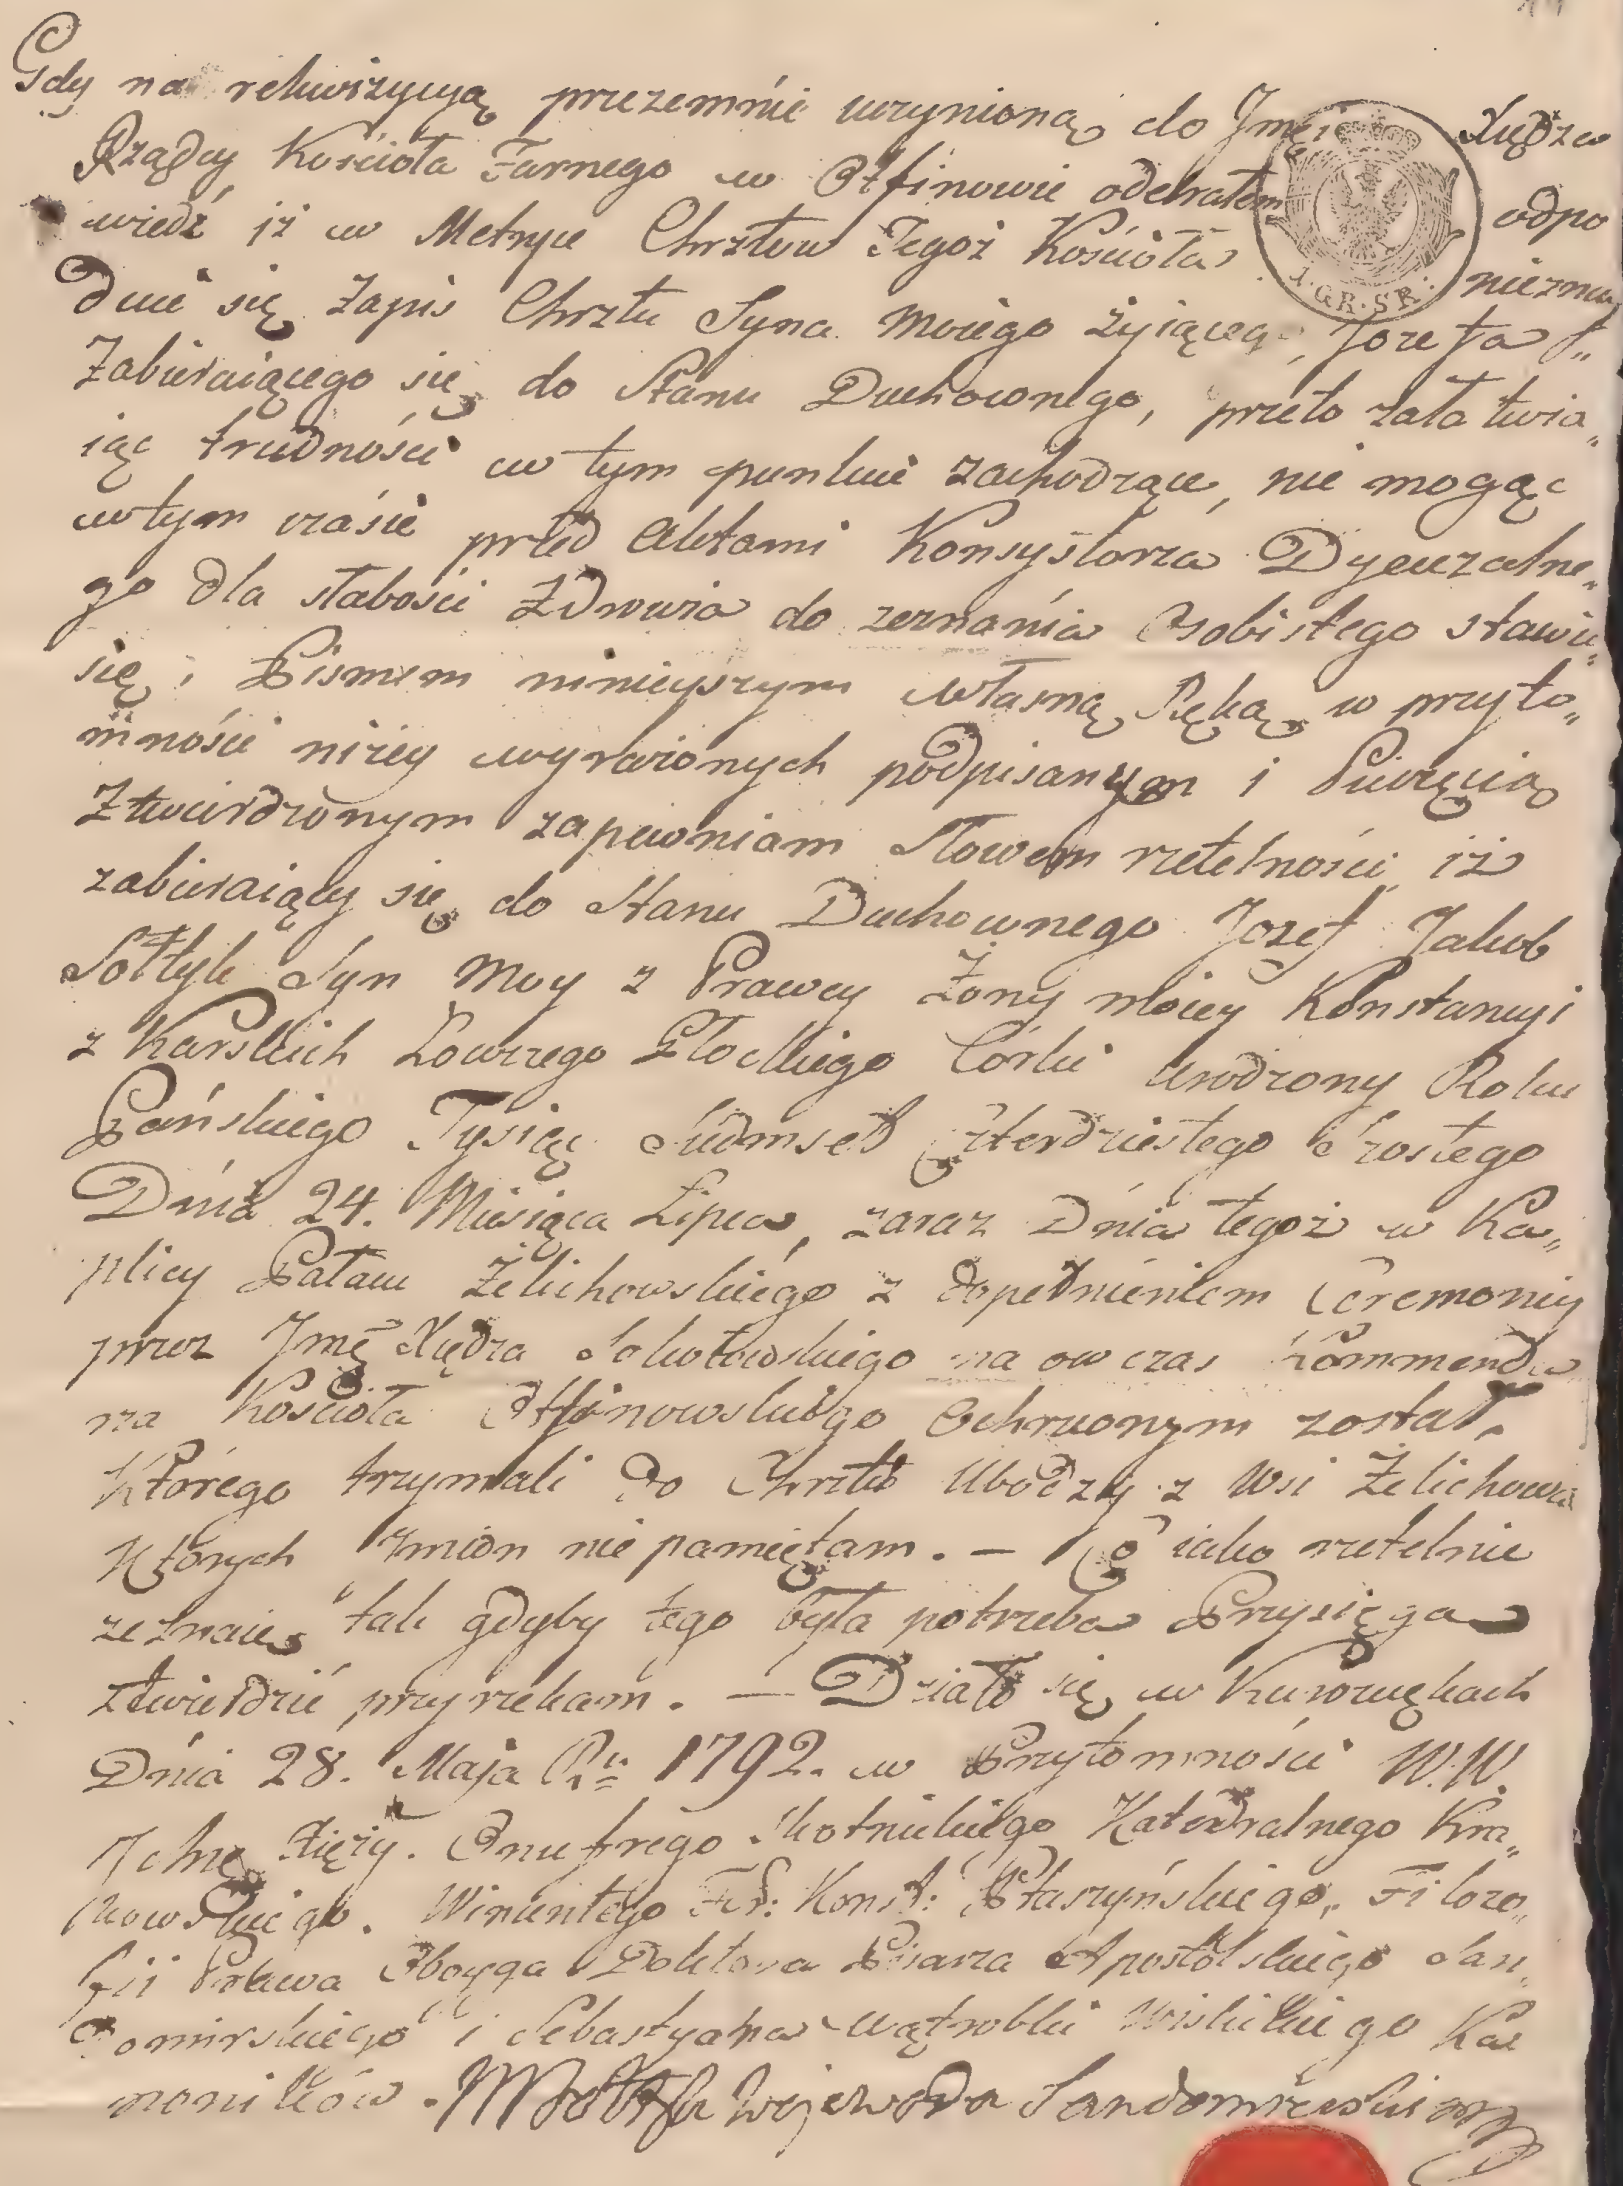 Gdy na rekwizycyą przezemnie uczynioną do Jmci Xiędza
Rządcy Kościoła Farnego w Otfinowie odebrałem odpo
wiedź iż w Metryce Chrztów Tegoż Kościoła nieznay
duie się Zapis Chrztu Syna Moiego żyiącego Jozefa S„
Zabieraiącego się do Stanu Duchownego, przeto załatwia„
iąc trudności w tym punkcie zachodzące, nie mogąc
w tym czasie przed Aktami Konsystorza Dyecezalne„
go dla słabości Zdrowia do zeznania Osobistego stawić„
się, Pismem ninieyszym własną Ręką w przyto„
mności niżey wyrażonych podpisanym i Pieczęcią
Ztwierdzonym zapewniam Słowem rzetelności, iż
zabieraiący się do Stanu Duchownego Jozef Jakub
Sołtyk Syn Moy z Prawey Żony moiey Konstancyi
z Karskich Łowczego Płockiego Córki urodzony Roku
Pańskiego Tysiąc Siedmset Czterdziestego Szostego
Dnia 24. Miesiąca Lipca, zaraz Dnia tegoż w Ka„
plicy Pałacu Żelichowskiego z dopełnieniem Ceremonij
przez Jmć Xiędza Sokołowskiego na ow czas Kommenda
rza Kościoła Otfinowskiego Ochrzconym został.
Którego trzymali do Chrztu Ubodzy z Wsi Żelichowa
Których Imion nie pamiętam. — Co iako rzetelnie
zeznaię tak gdyby tego była potrzeba Przysięgą
ztwierdzić przyrzekam. — Działo się w Kurozwękach
Dnia 28. Maja Rku 1792. w Przytomności W.W.
Jchmć Xięży. Onufrego Skotnickiego Katedralnego Kra„
kowskiego. Wincentego Fer: Konst: Płaszyńskiego„ Filozo„
fii Prawa Oboyga Doktora Pisarza Apostolskiego San„
domirskiego i Sebastyana Wątrobki Wislickiego Ka
noników. MSołtyk Wojewoda Sandomierski mp
1·GR·SR·